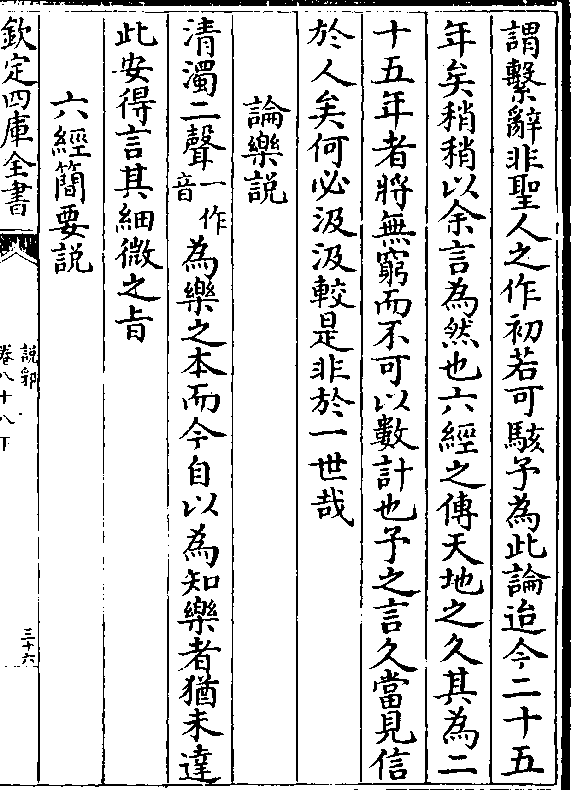 謂繫辭非聖人之作初若可駭予為此論迨今二十五
年矣稍稍以余言為然也六經之傳天地之久其為二
十五年者將無窮而不可以數計也予之言久當見信
於人矣何必汲汲較是非於一世哉
論樂説
清濁二聲一作音為樂之本而今自以為知樂者猶未達
此安得言其細微之旨
六經簡要説
欽定四庫全書
説郛
卷八十八下
三十六